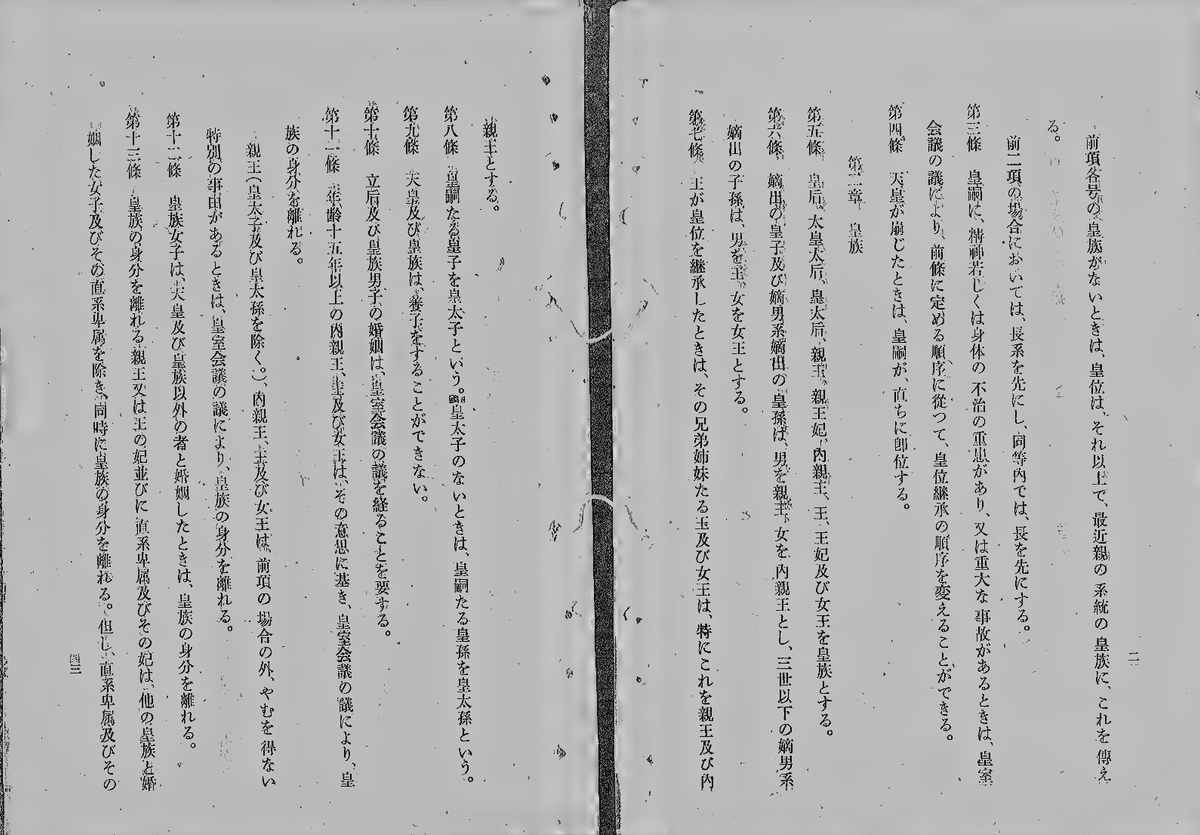 二
前項各号の皇族がないときは、皇位は、それ以上で、最近親の系統の皇族に、これを傳え
る。
前二項の場合においては、長系を先にし、同等內では、長を先にする。
第三條 皇嗣に、精神若しくは身体の不治の重患があり、又は重大な事故があるときは、皇室
会議の議により、前條に定める順序に從つて、皇位継承の順序を変えることができる。
第四條 天皇が崩じたときは、皇嗣が、直ちに卽位する。
第二章 皇族
第五條 皇后、太皇太后、皇太后、親王、親王妃、內親王、王、王妃及び女王を皇族とする。
第六條 嫡出の皇子及び嫡男系嫡出の皇孫は、男を親王、女を內親王とし、三世以下の嫡男系
嫡出の子孫は、男を王、女を女王とする。
第七條 王が皇位を継承したときは、その兄弟姉妹たる王及び女王は、特にこれを親王及び內
親王とする。
第八條 皇嗣たる皇子を皇太子という。皇太子のないときは、皇嗣たる皇孫を皇太孫という。
第九條 天皇及び皇族は、養子をすることができない。
第十條 立后及び皇族男子の婚姻は、皇室会議の議を経ることを要する。
第十一條 年齢十五年以上の內親王、王及び女王は、その意思に基き、皇室会議の議により、皇
族の身分を離れる。
親王(皇太子及び皇太孫を除く。)、內親王、王及び女王は、前項の場合の外、やむを得ない
特別の事由があるときは、皇室会議の議により、皇族の身分を離れる。
第十二條 皇族女子は、天皇及び皇族以外の者と婚姻したときは、皇族の身分を離れる。
第十三條 皇族の身分を離れる親王又は王の妃並びに直系卑属及びその妃は、他の皇族と婚
姻した女子及びその直系卑属を除き、同時に皇族の身分を離れる。但し、直系卑属及びその
三